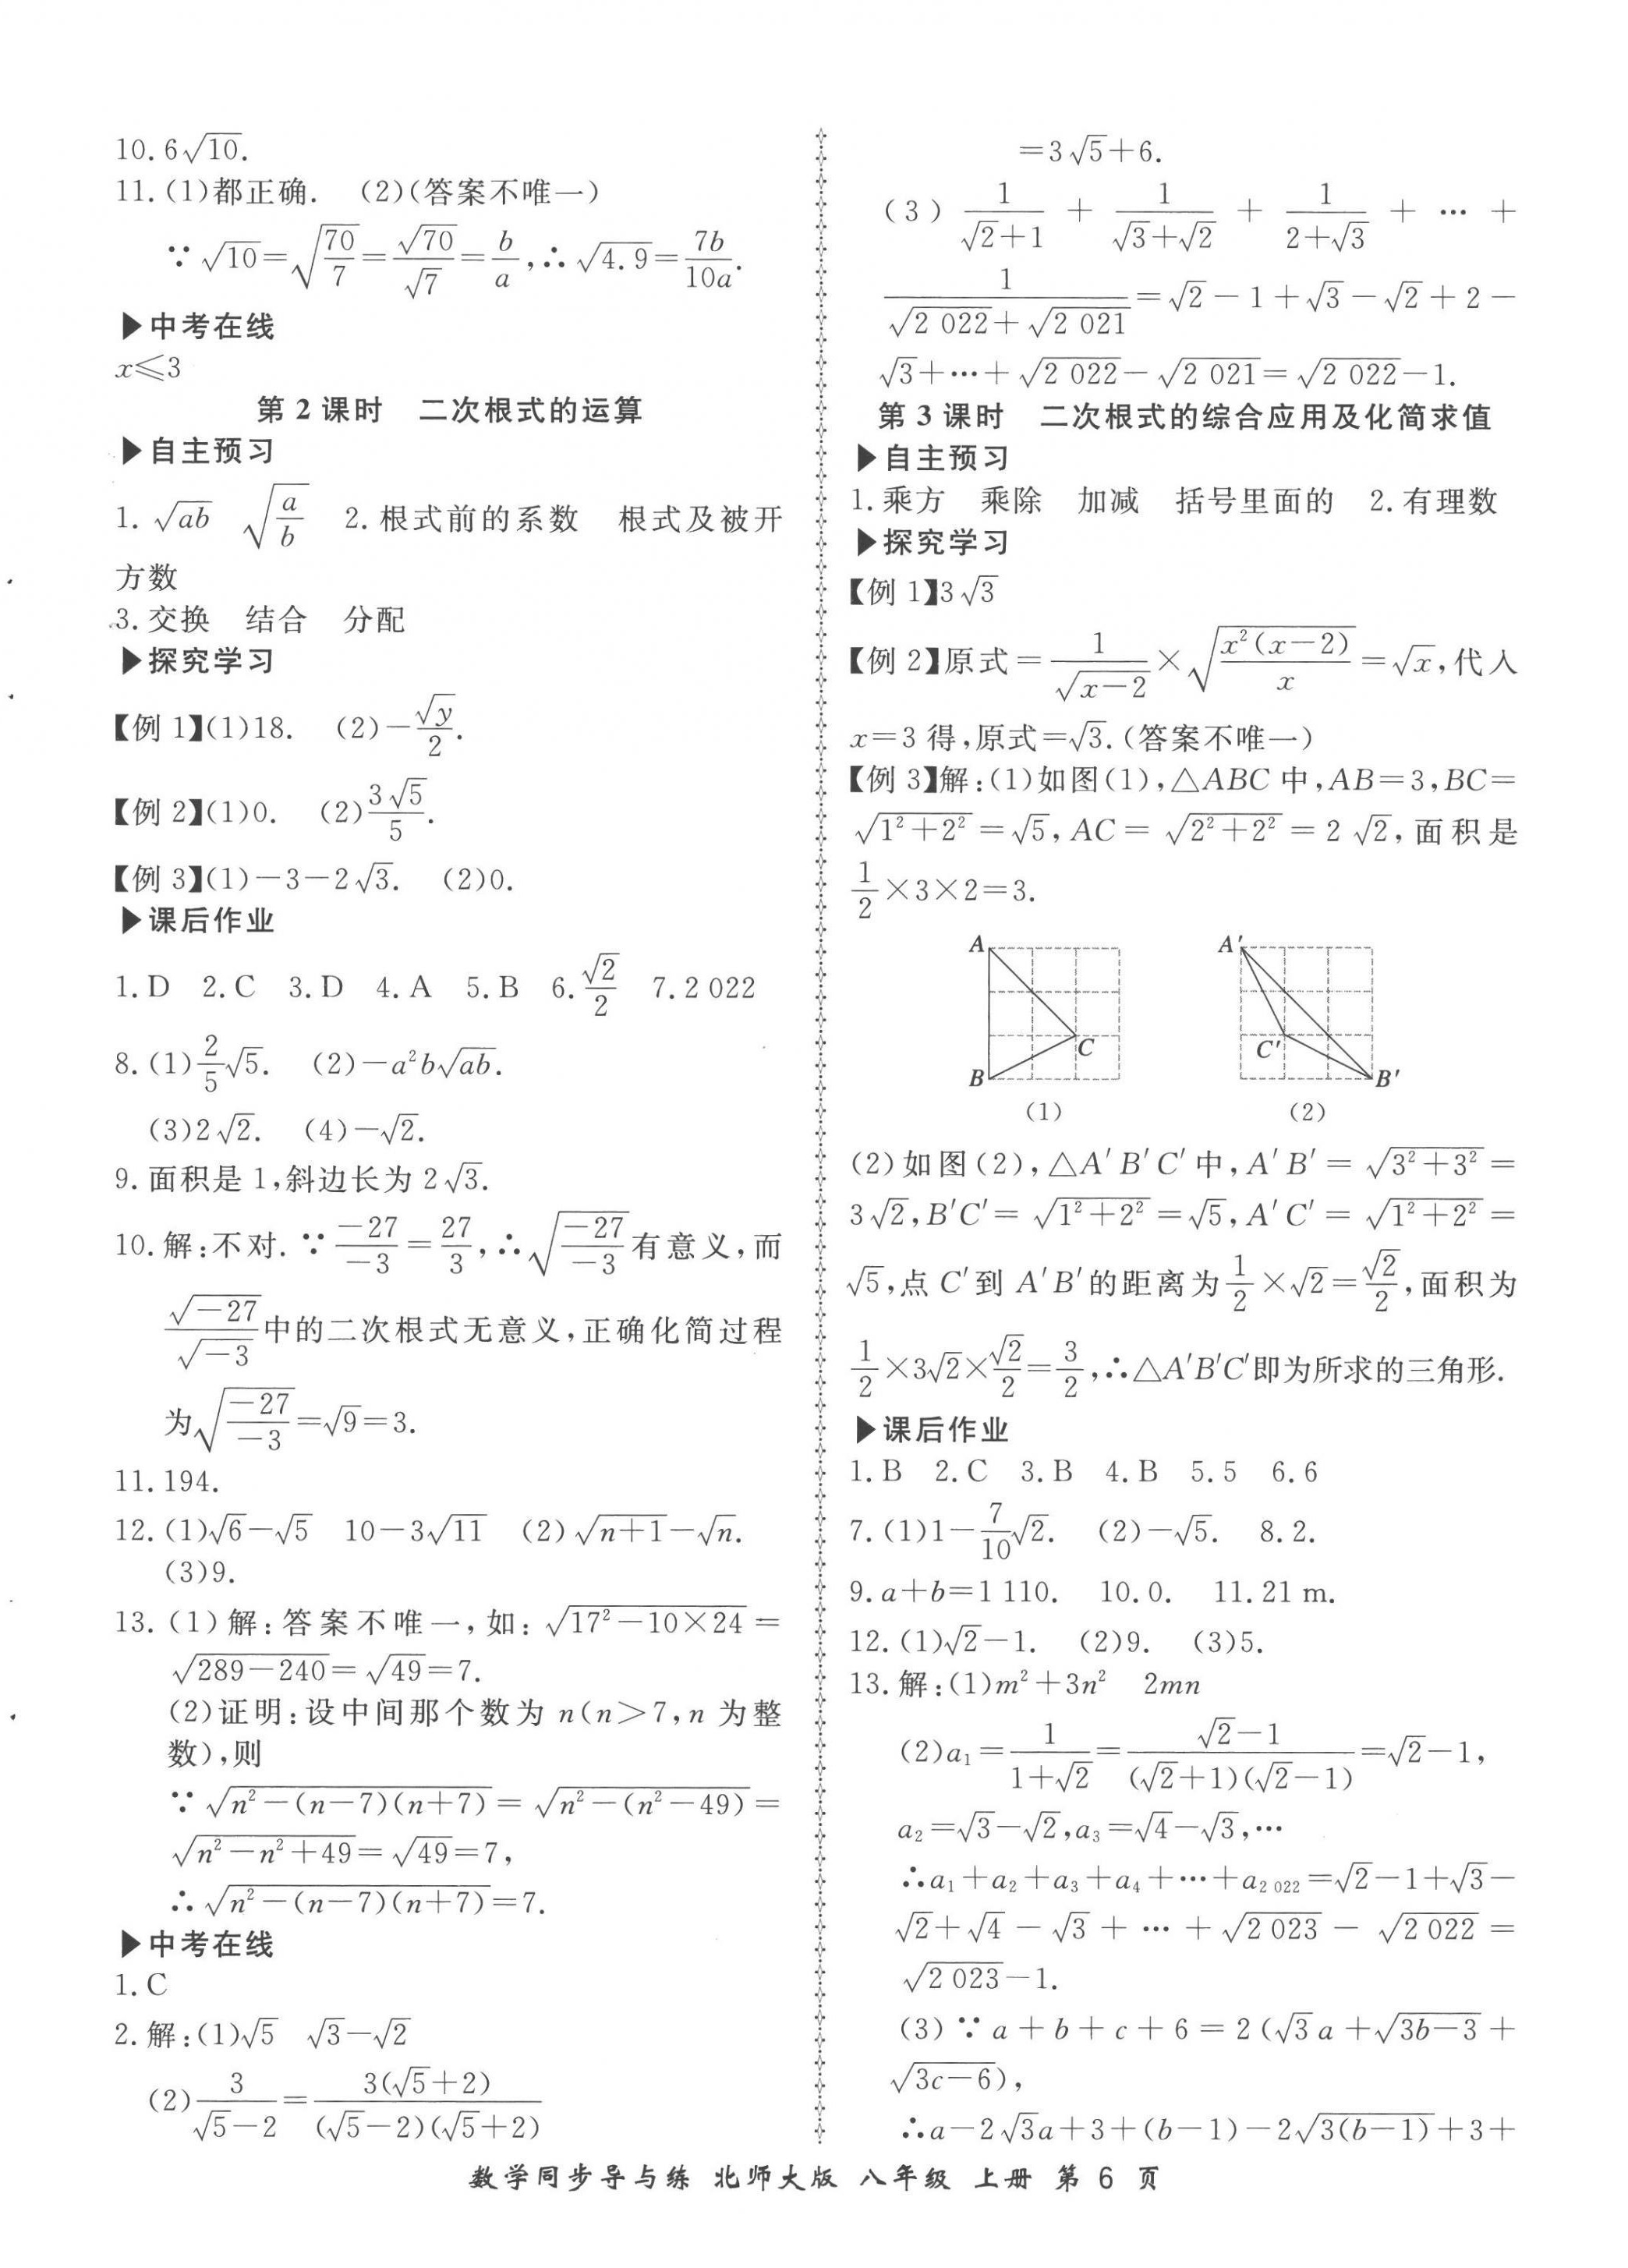 10. 6√10.
11. (1)都正确. (2)(答案不唯一)
∵ √10=√(70/7)=√70/√7=b/a,∴ √4.9=7b/10a.
▶中考在线
x≤3
第 2 课时 二次根式的运算
▶自主预习
1. √ab √(a/b) 2. 根式前的系数 根式及被开
方数
3. 交换 结合 分配
▶探究学习
【例 1】(1)18. (2)−√y/2.
【例 2】(1)0. (2)3√5/5.
【例 3】(1)−3−2√3. (2)0.
▶课后作业
1. D 2. C 3. D 4. A 5. B 6. √2/2 7. 2 022
8. (1)2/5√5. (2)−a²b√ab.
(3)2√2. (4)−√2.
9. 面积是 1,斜边长为 2√3.
10. 解:不对. ∵ −27/−3=27/3,∴√(−27/−3)有意义,而
√−27/√−3中的二次根式无意义,正确化简过程
为√(−27/−3)=√9=3.
11. 194.
12. (1)√6−√5 10−3√11 (2)√(n+1)−√n.
(3)9.
13. (1)解:答案不唯一,如:√(17²−10×24)=
√(289−240)=√49=7.
(2)证明:设中间那个数为 n(n>7,n 为整
数),则
∵ √(n²−(n−7)(n+7))=√(n²−(n²−49))=
√(n²−n²+49)=√49=7,
∴ √(n²−(n−7)(n+7))=7.
▶中考在线
1. C
2. 解:(1)√5 √3−√2
(2)3/(√5−2)=3(√5+2)/((√5−2)(√5+2))
=3√5+6.
(3)1/(√2+1)+1/(√3+√2)+1/(2+√3)+…+
1/(√2 022+√2 021)=√2−1+√3−√2+2−
√3+…+√2 022−√2 021=√2 022−1.
第 3 课时 二次根式的综合应用及化简求值
▶自主预习
1. 乘方 乘除 加减 括号里面的 2. 有理数
▶探究学习
【例 1】3√3
【例 2】原式=1/√(x−2)×√(x²(x−2)/x)=√x,代入
x=3 得,原式=√3.(答案不唯一)
【例 3】解:(1)如图(1),△ABC 中,AB=3,BC=
√(1²+2²)=√5,AC=√(2²+2²)=2√2,面积是
1/2×3×2=3.
A A′
C C′
B B′
(1) (2)
(2)如图(2),△A′B′C′中,A′B′=√(3²+3²)=
3√2,B′C′=√(1²+2²)=√5,A′C′=√(1²+2²)=
√5,点 C′到 A′B′的距离为1/2×√2=√2/2,面积为
1/2×3√2×√2/2=3/2,∴△A′B′C′即为所求的三角形.
▶课后作业
1. B 2. C 3. B 4. B 5. 5 6. 6
7. (1)1−7/10√2. (2)−√5. 8. 2.
9. a+b=1 110. 10. 0. 11. 21 m.
12. (1)√2−1. (2)9. (3)5.
13. 解:(1)m²+3n² 2mn
(2)a₁=1/(1+√2)=(√2−1)/((√2+1)(√2−1))=√2−1,
a₂=√3−√2,a₃=√4−√3,…
∴a₁+a₂+a₃+a₄+…+a₂ ₀₂₂=√2−1+√3−
√2+√4−√3+…+√2 023−√2 022=
√2 023−1.
(3)∵a+b+c+6=2(√3a+√(3b−3)+
√(3c−6)),
∴a−2√3a+3+(b−1)−2√(3(b−1))+3+
数学同步导与练 北师大版 八年级 上册 第 6 页